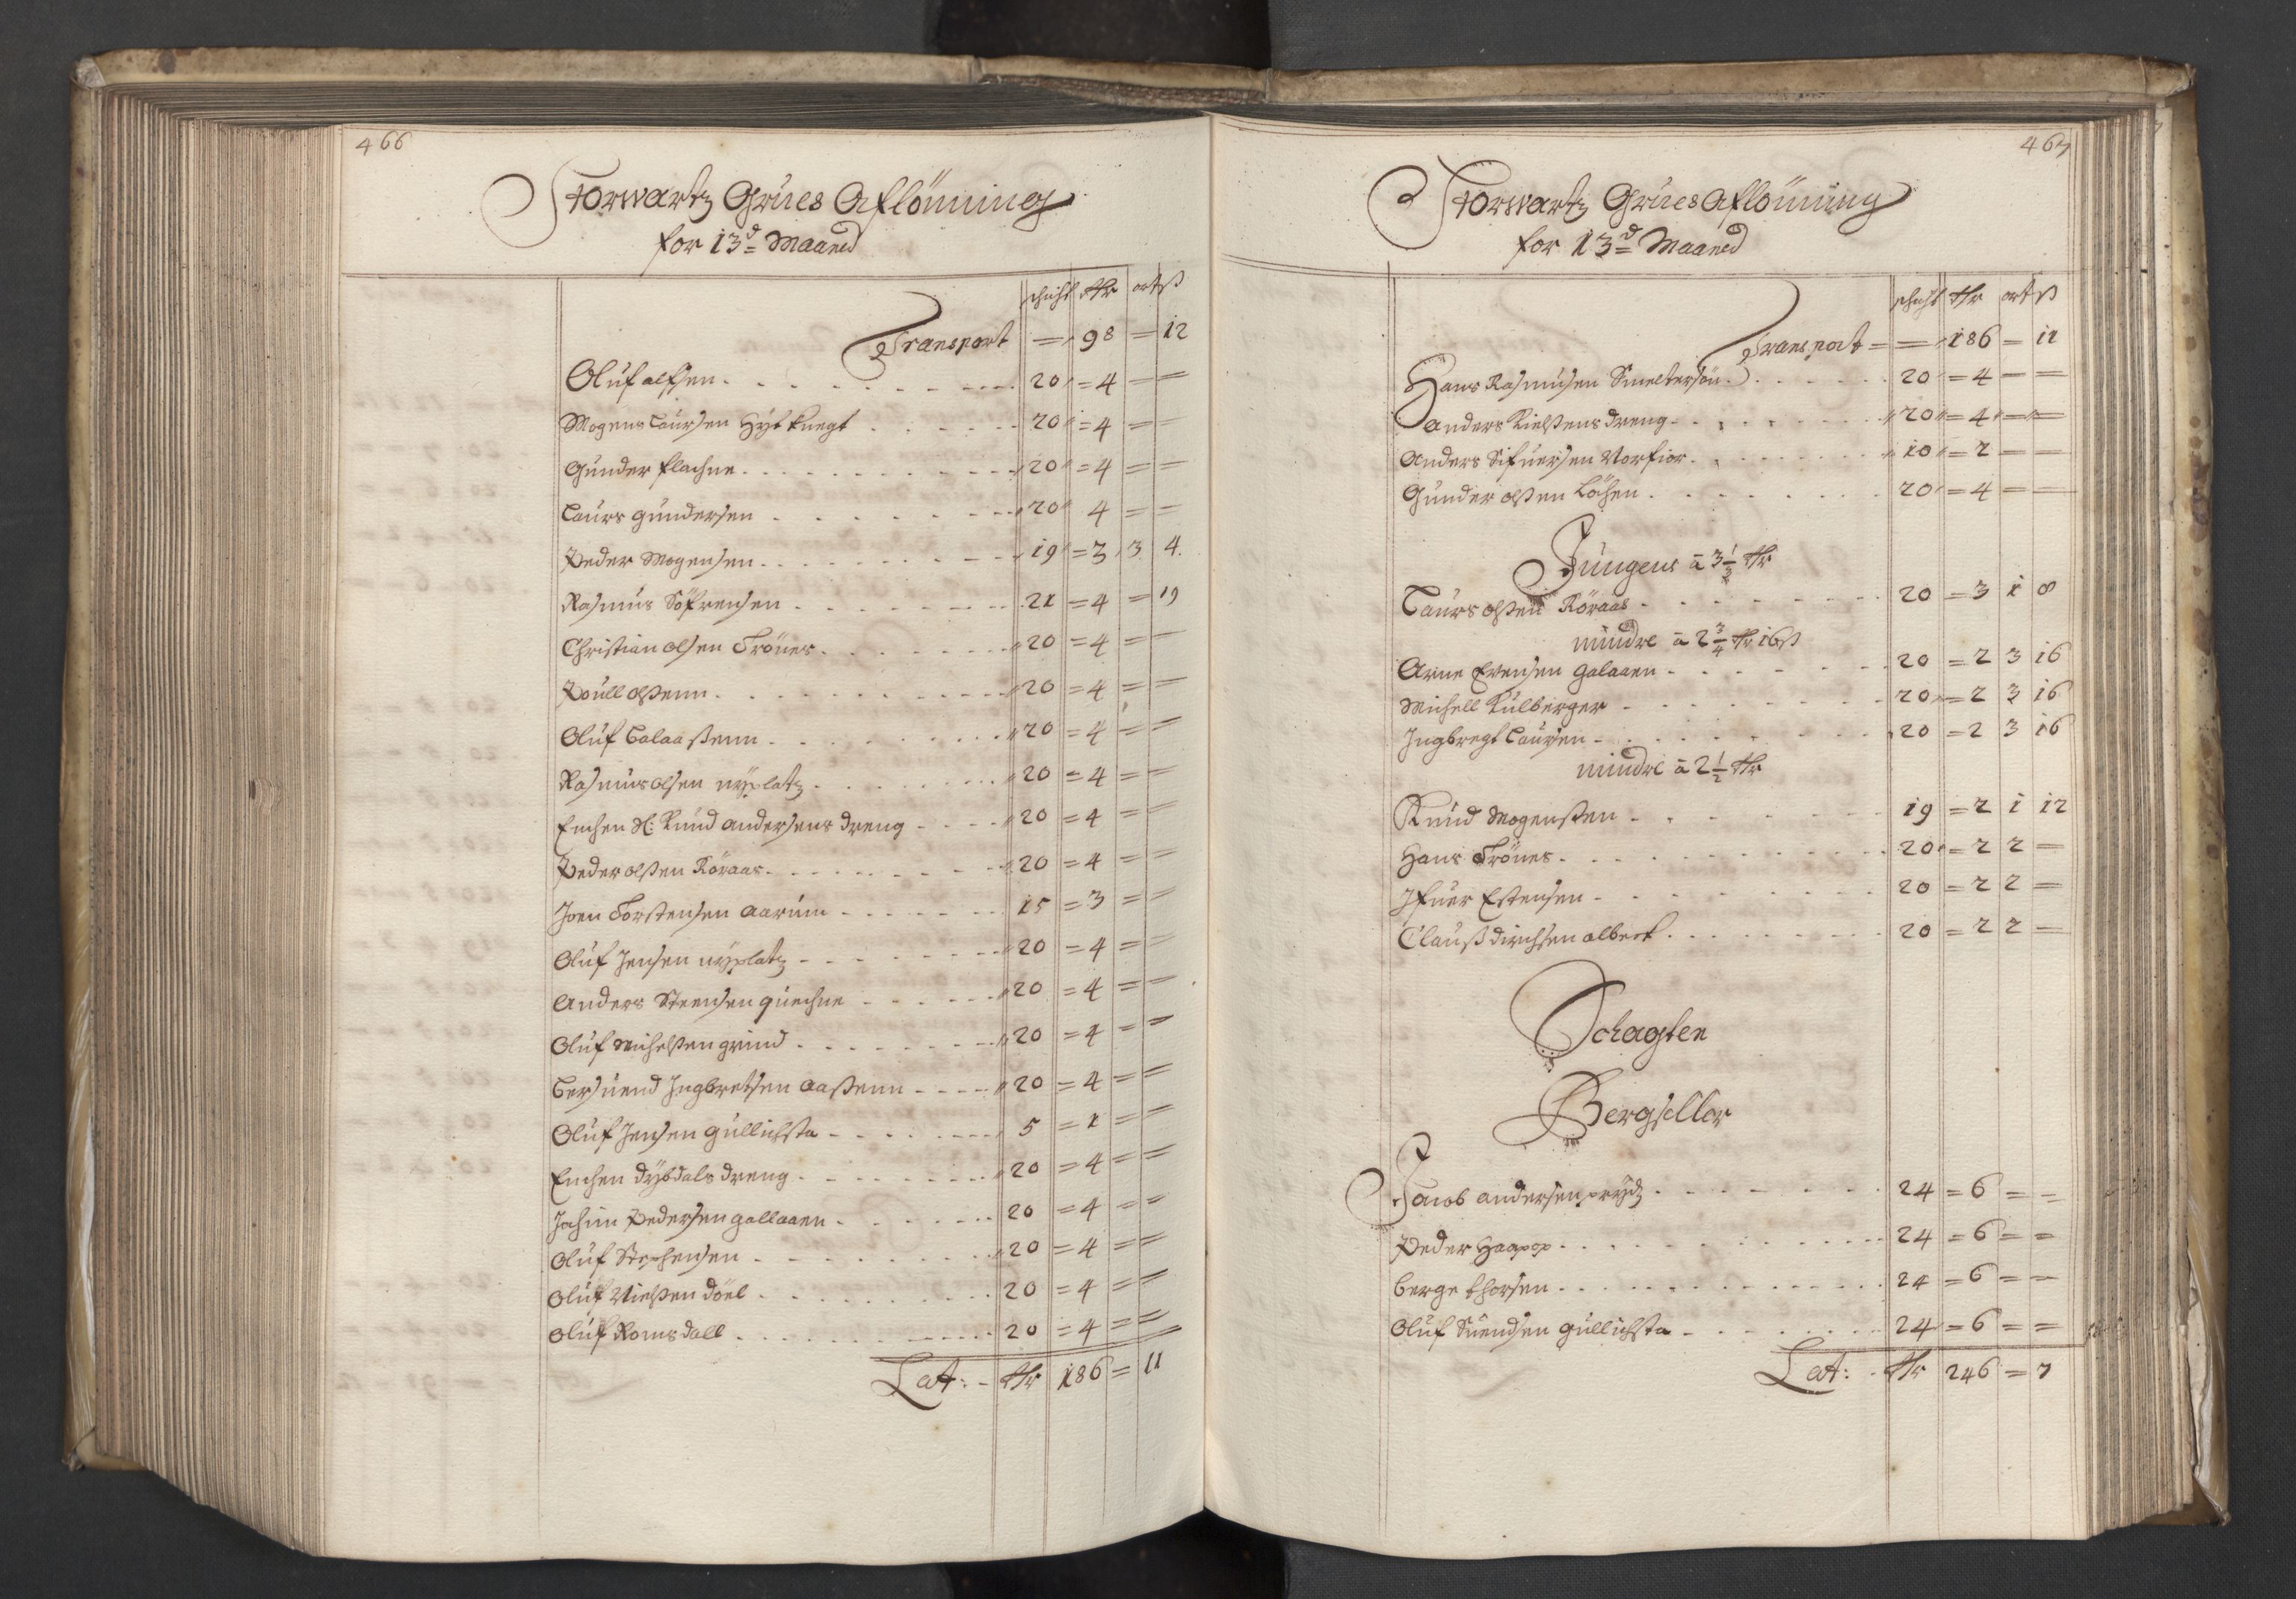 466
Storwartz Grues Aflönning
for 13d Maaned
schicht Rthr ort ß
Transport = 98 = 12
Oluf alfsen 20 = 4 = =
Mogens Laursen Hÿt knegt 20 = 4 = =
Gunder flachne 20 = 4 = =
Laurs gundersen 20 4 = =
Peder Mogensen 19 = 3 3 4.
Rasmus Söfrensen 21 = 4 = 19
Christian olsen Trönes 20 = 4 = =
Poull olßenn 20 = 4 = =
Oluf Calaaßenn 20 = 4 = =
Rasmus olsen nÿplatz 20 = 4 = =
Enchen Sl: Knud andersens dreng 20 = 4 = =
Peder olßen Röraas 20 = 4 = =
Joen Torstensen aarum 15 = 3 = =
Oluf Jensen nÿplatz 20 = 4 = =
Anders Steensen quechne 20 = 4 = =
Oluf Michelßen grind 20 = 4 = =
Bersuend Ingbretsen aaßenn 20 = 4 = =
Oluf Jensen gullichsta 5 = 1 = =
Enchen dÿbdals dreng 20 = 4 = =
Jochim Pedersen gallaaen 20 = 4 = =
Oluf Stephensen 20 = 4 = =
Oluf Nielßen döel 20 = 4 = =
Oluf Romsdall 20 = 4 = =
Lat: Rthr 186 = 11
467
Storwartz Grues Aflönning
for 13d Maaned
schicht Rthr ort ß
Transport = = 186 = 11
Hans Rasmusen Smeltersön 20 = 4 = =
Anders Kielßens dreng 20 = 4 = =
Anders Sifuersen Norfior 10 = 2 = =
Gunder olßen Löhen 20 = 4 = =
Jungens â 3 1/3 Rthr
Laurs olßen Röraas 20 = 3 1 8
mindre â 2 3/4 Rthr 16 ß
Arne Evensen galaaen 20 = 2 3 16
Michell Kulberger 20 = 2 3 16
Ingbregt Laursen 20 = 2 3 16
mindre â 2 1/2 Rthr
Knud Mogenßen 19 = 2 1 12
Hans Trönes 20 = 2 2 =
Ifuer Estensen 20 = 2 2 =
Clauß dirichsen albert 20 = 2 2 =
Schagten
Bergseller
Jacob andersen prÿdz 24 = 6 = =
Peder Haapop 24 = 6 = =
berge thorsen 24 = 6 = =
Oluf Suendsen gullichsta 24 = 6 = =
Lat: Rthr 246 = 7